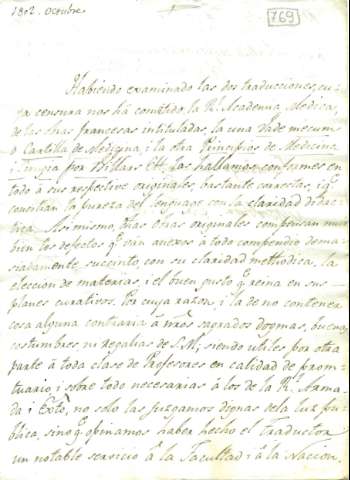 1802. Octubre
769
Habiendo examinado las dos traducciones, cu-
ya censura nos há cometido la Rl. Academia Medica,
de las obras francesas intituladas, la una Vade mecum
o Cartilla de Medicina, i la otra Principios de Medicina
i Cirugia por Willars &. las hallamos conformes en
todo à sus respective originales, bastante correctas, i q.
concilian la pureza del lenguage con la claridad didac-
tica. Asimismo, dhas obras originales compensan mui
bien los defectos q. són anexos à todo compendio dema-
siadamente succinto, con su claridad methodica, la
eleccion de materias, i el buen gusto q. reina en sus
planes curativos. Por cuya razon, i la de no contener
cosa alguna contraria à nros sagrados dogmas, buenas
costumbres, ni regalias de S. M., siendo utiles por otra
parte à toda clase de Profesores en calidad de promp-
tuario, i sobre todo necesarias à los de la Rl. Arma-
da i Exto., no solo las juzgamos dignas de la luz pu-
blica, sino q. opinamos haber hecho el traductor
un notable servicio à la Facultad i à la Nacion.